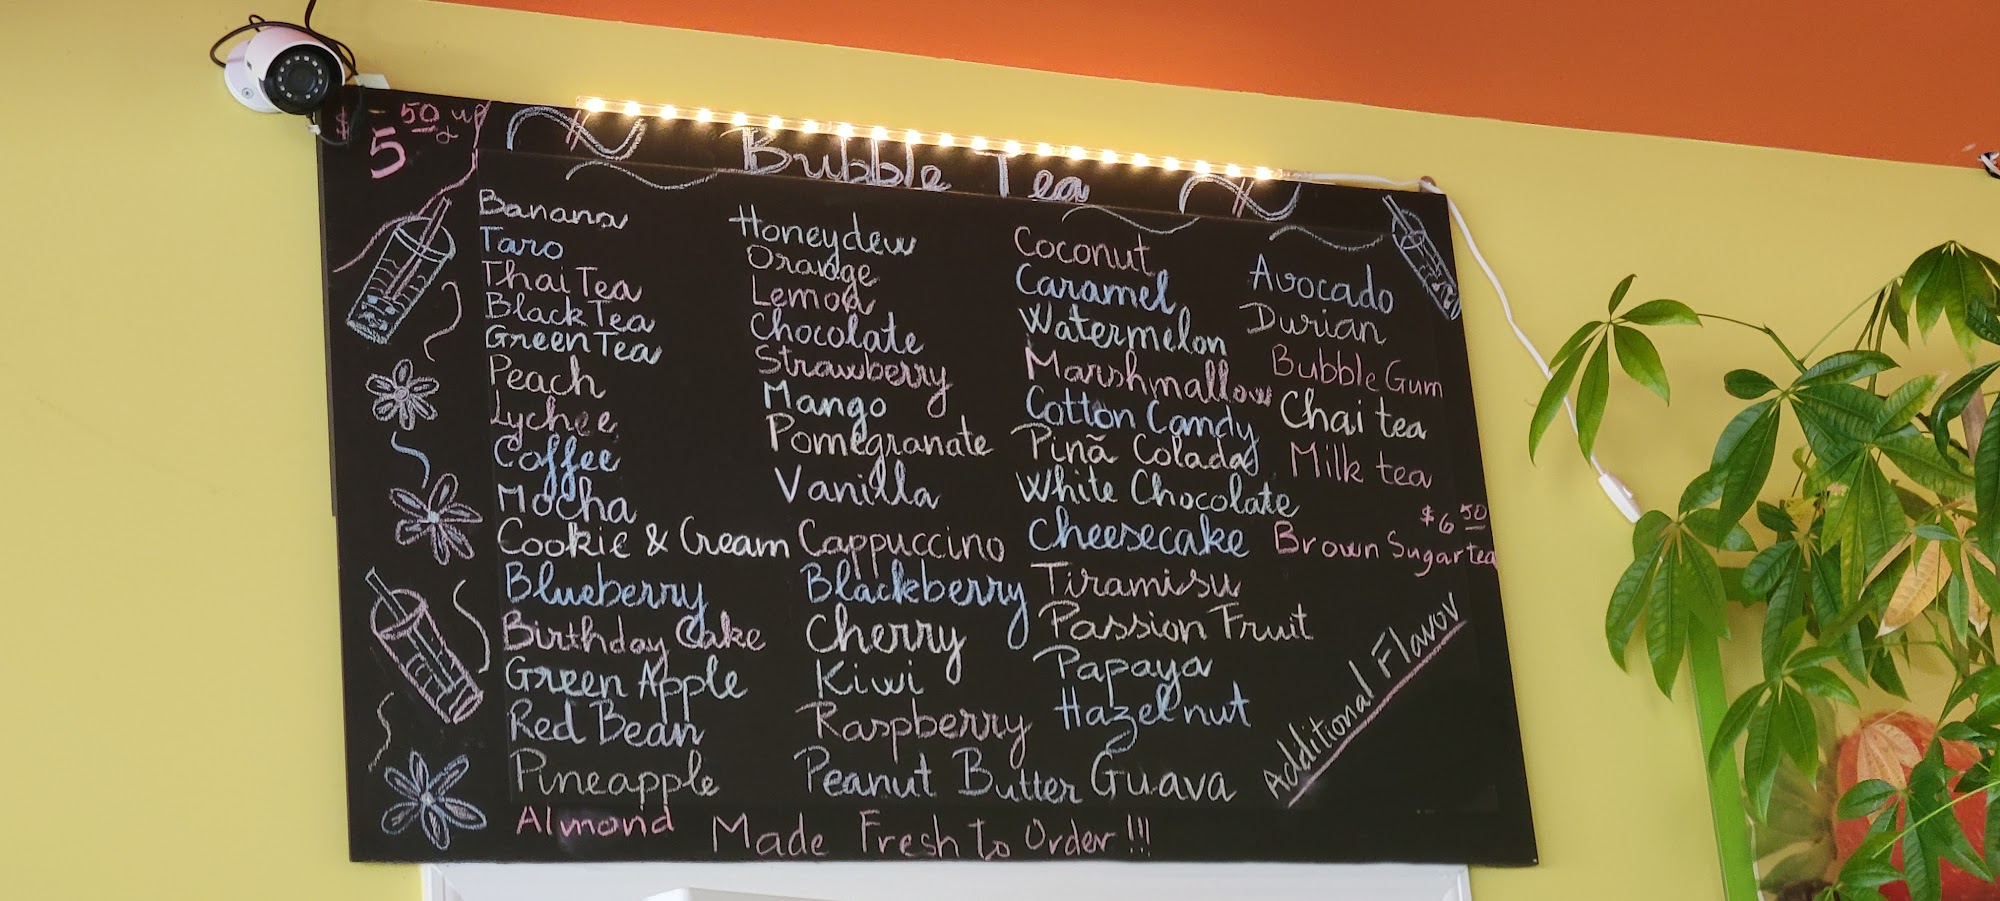 $5.50 up
Bubble Tea
Banana
Taro
Thai Tea
Black Tea
Green Tea
Peach
Lychee
Coffee
Mocha
Cookie & Cream
Blueberry
Birthday Cake
Green Apple
Red Bean
Pineapple
Almond
Honeydew
Orange
Lemon
Chocolate
Strawberry
Mango
Pomegranate
Vanilla
Cappuccino
Blackberry
Cherry
Kiwi
Raspberry
Peanut Butter
Coconut
Caramel
Watermelon
Marshmallow
Cotton Candy
Pinã Colada
White Chocolate
Cheesecake
Tiramisu
Passion Fruit
Papaya
Hazelnut
Guava
Avocado
Durian
Bubble Gum
Chai tea
Milk tea
$6 50
Brown Sugar tea
Additional Flavor
Made Fresh to Order!!!